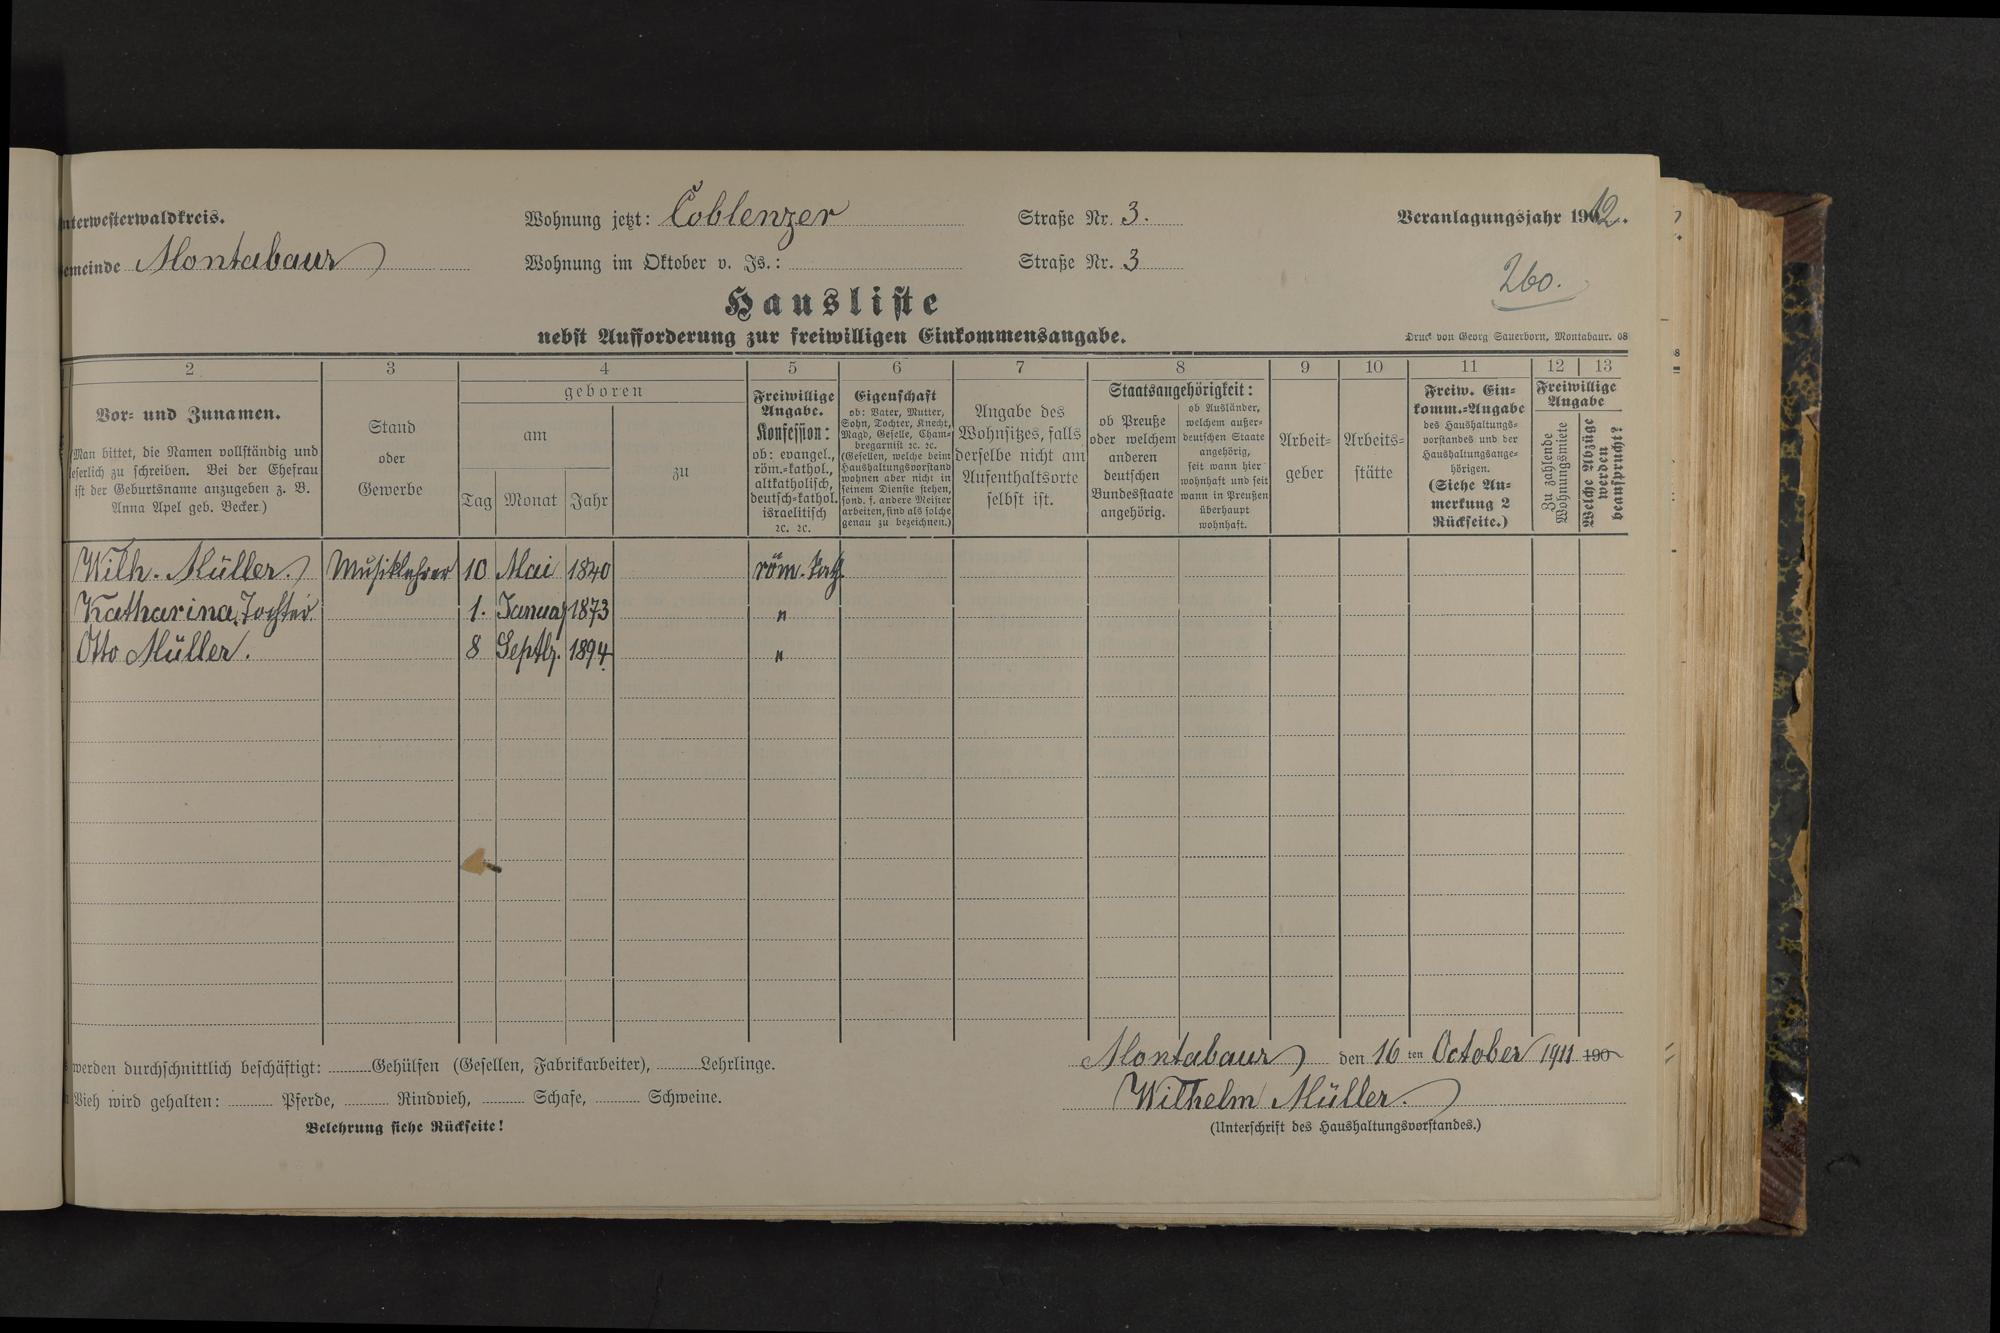 nterwesterwaldkreis. Wohnung jetzt: Coblenzer Straße Nr. 3. Veranlagungsjahr 1912.
emeinde Montabaur Wohnung im Oktober v. Js.: Straße Nr. 3
260.
Hausliste
nebst Aufforderung zur freiwilligen Einkommensangabe.
Druck von Georg Sauerborn, Montabaur. 08
2 3 4 5 6 7 8 9 10 11 12 13
Vor- und Zunamen.
Man bittet, die Namen vollständig und
leserlich zu schreiben. Bei der Ehefrau
ist der Geburtsname anzugeben z. B.
Anna Apel geb. Becker.)
Stand
oder
Gewerbe
geboren
am
Tag Monat Jahr
zu
Freiwillige
Angabe.
Konfession:
ob: evangel.,
röm.-kathol.,
altkatholisch,
deutsch-kathol.
israelitisch
ꝛc. ꝛc.
Eigenschaft
ob: Vater, Mutter,
Sohn, Tochter, Knecht,
Magd, Geselle, Cham-
bregarnist ꝛc. ꝛc.
(Gesellen, welche beim
Haushaltungsvorstand
wohnen aber nicht in
seinem Dienste stehen,
sond. f. andere Meister
arbeiten, sind als solche
genau zu bezeichnen.)
Angabe des
Wohnsitzes, falls
derselbe nicht am
Aufenthaltsorte
selbst ist.
Staatsangehörigkeit:
ob Preuße
oder welchem
anderen
deutschen
Bundesstaate
angehörig.
ob Ausländer,
welchem außer-
deutschen Staate
angehörig,
seit wann hier
wohnhaft und seit
wann in Preußen
überhaupt
wohnhaft.
Arbeit-
geber
Arbeits-
stätte
Freiw. Ein-
komm.-Angabe
des Haushaltungs-
vorstandes und der
Haushaltungsange-
hörigen.
(Siehe An-
merkung 2
Rückseite.)
Freiwillige
Angabe
Zu zahlende
Wohnungsmiete
Welche Abzüge
werden
beansprucht?
Wilh. Müller. Musiklehrer 10 Mai 1840 röm. kath.
Katharina, Tochter. 1. Januar 1873 "
Otto Müller. 8 Septbr. 1894 "
werden durchschnittlich beschäftigt: Gehülfen (Gesellen, Fabrikarbeiter), Lehrlinge.
Vieh wird gehalten: Pferde, Rindvieh, Schafe, Schweine.
Belehrung siehe Rückseite!
Montabaur den 16 ten October 1911 190
Wilhelm Müller.
(Unterschrift des Haushaltungsvorstandes.)